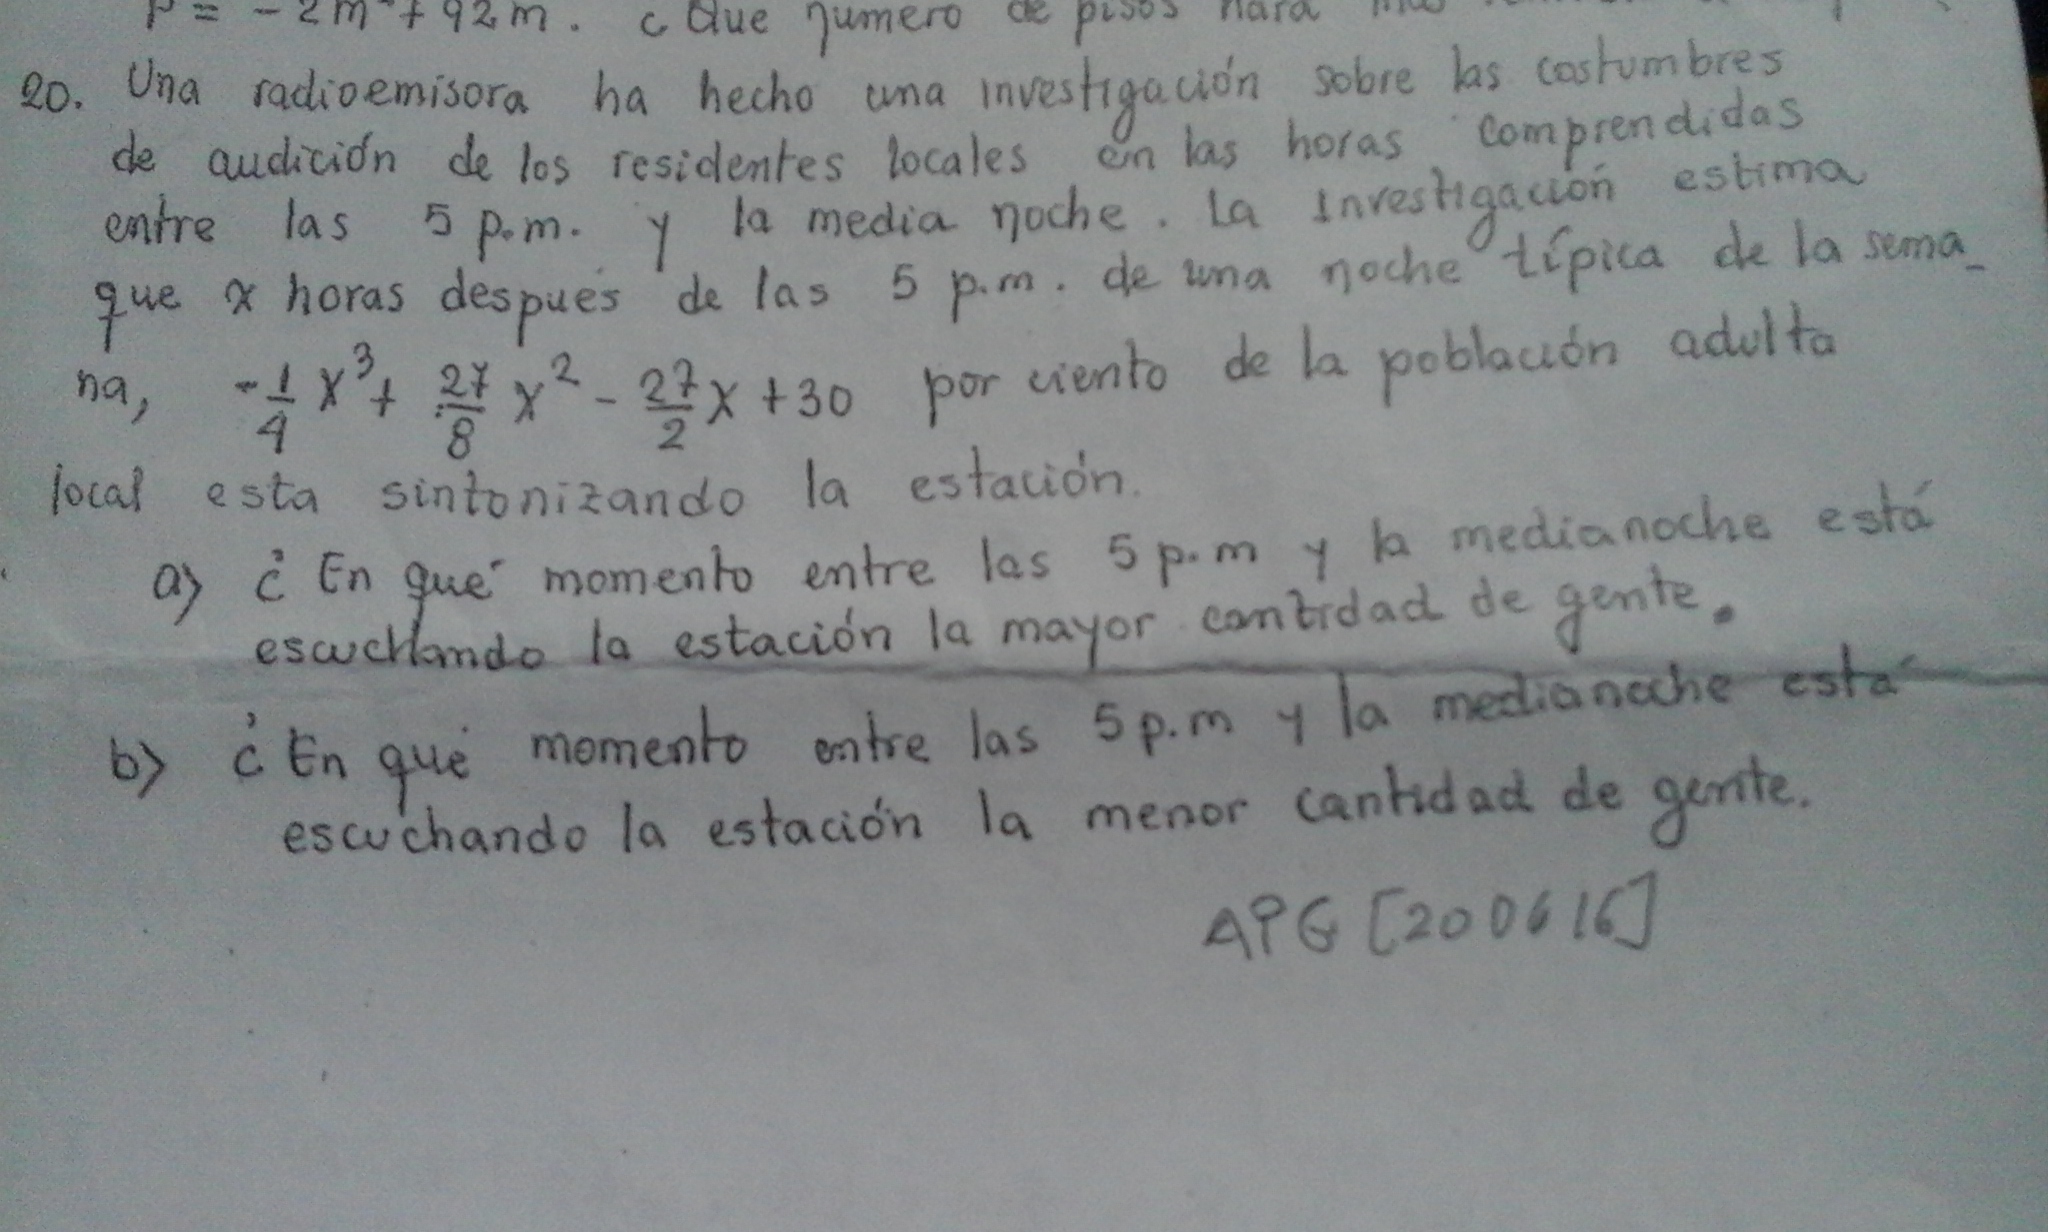 P = -2m² + 92m. ¿Que número de pisos hará
20. Una radioemisora ha hecho una investigación sobre las costumbres
de audición de los residentes locales en las horas comprendidas
entre las 5 p.m. y la media noche. La Investigación estima
que x horas después de las 5 p.m. de una noche típica de la sema_
na, -1/4 x³ + 27/8 x² - 27/2 x + 30 por ciento de la población adulta
local esta sintonizando la estación.
a) ¿ En qué momento entre las 5 p.m y la medianoche está
escuchando la estación la mayor cantidad de gente.
b) ¿ En qué momento entre las 5 p.m y la medianoche está
escuchando la estación la menor cantidad de gente.
APG [200616]